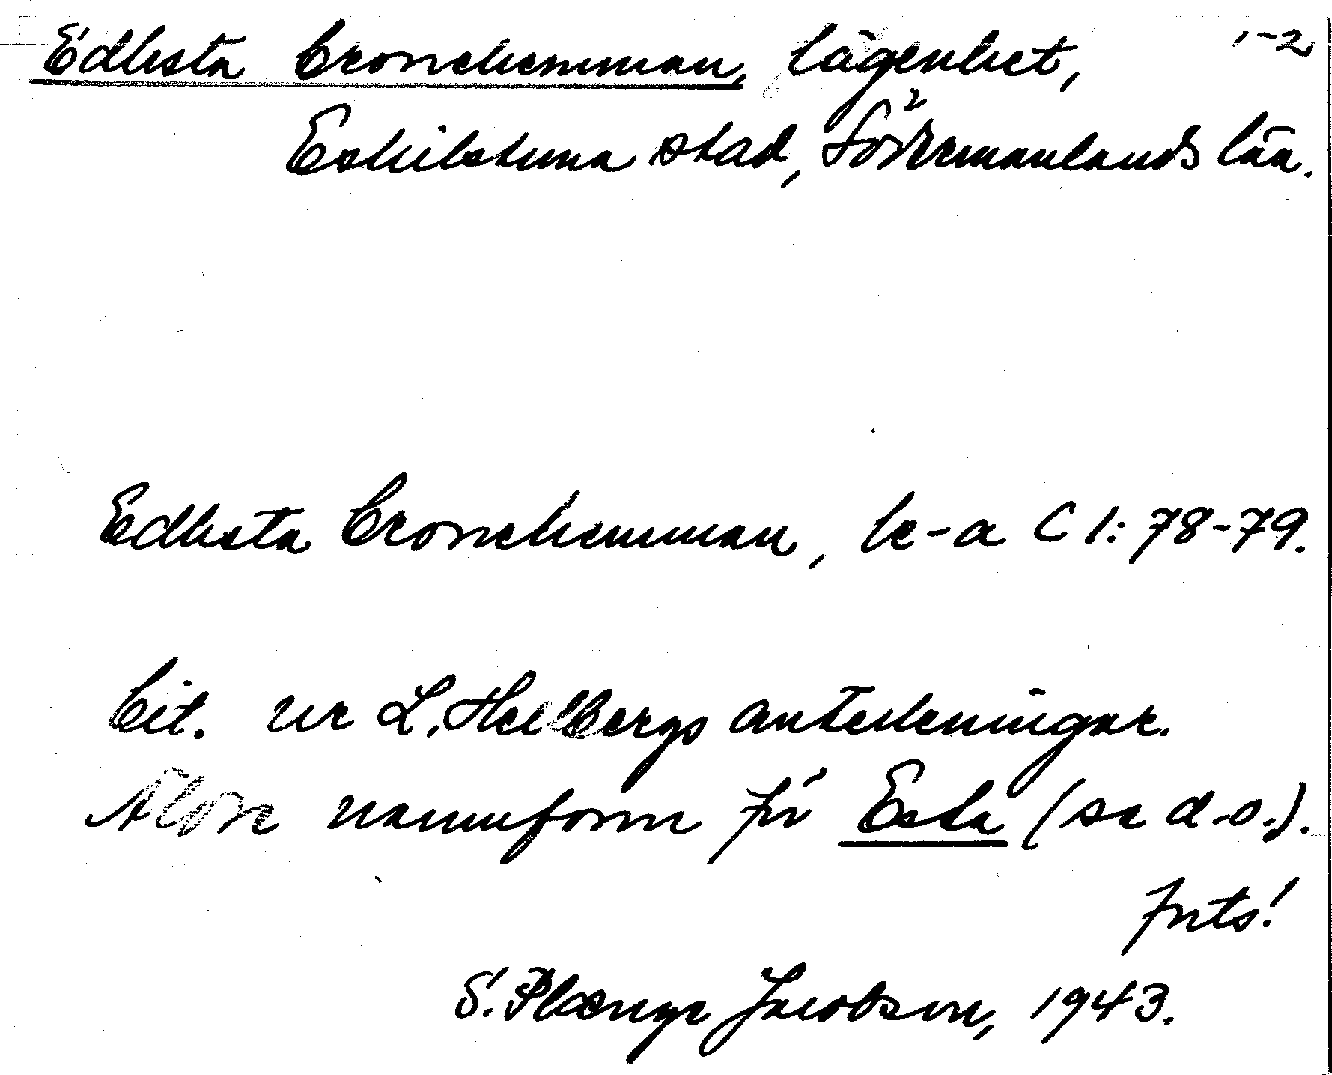 Edhsta Cronehemman, lägenhet, 1-2
Eskilstuna stad, Södermanlands län.
Edhsta Cronehemman, kr-a C 1: 78-79.
Cit. ur L. Hellbergs anteckningar.
Äldre namnform för Esta (se d.o.).
forts!
S. Plænge Jacobson, 1943.